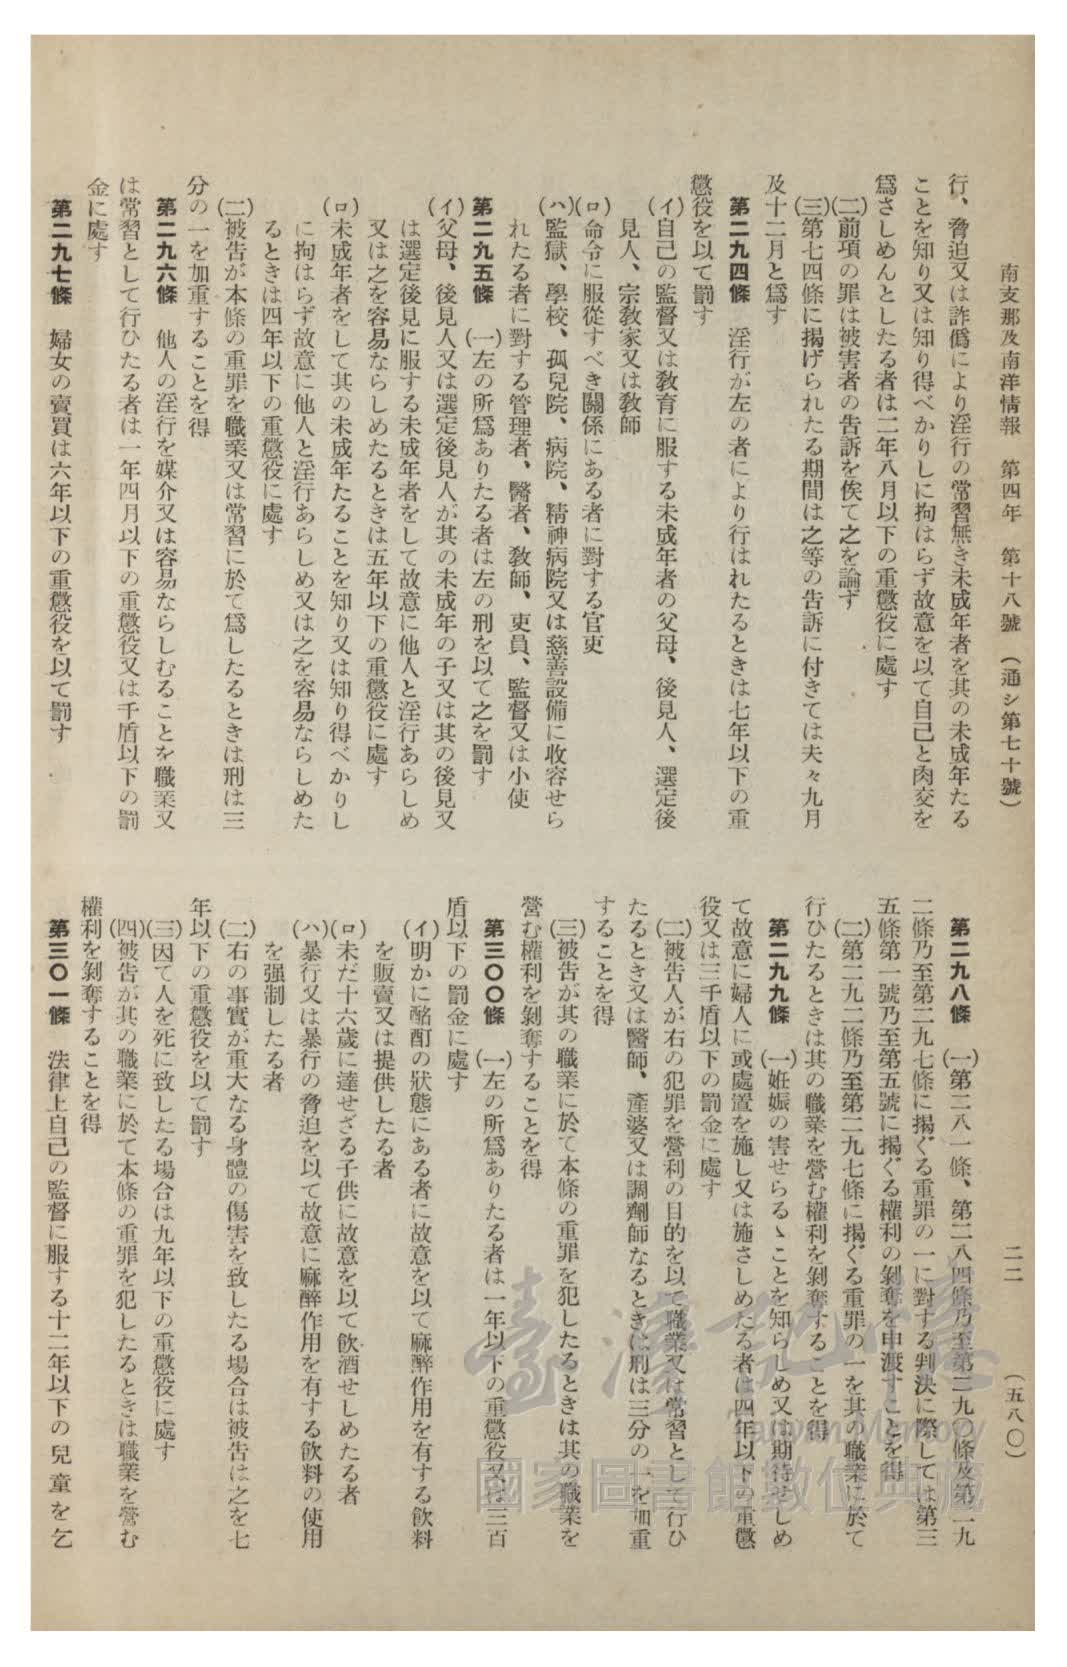 南支那及南洋情報　第四年　第十八號　（通シ第七十號）　二二　（五八〇）
行、脅迫又は詐僞により淫行の常習無き未成年者を其の未成年たる
ことを知り又は知り得べかりしに拘はらず故意を以て自己と肉交を
爲さしめんとしたる者は二年八月以下の重懲役に處す
(二)前項の罪は被害者の告訴を俟て之を論ず
(三)第七四條に揭げられたる期間は之等の告訴に付きては夫々九月
及十二月と爲す
第二九四條　淫行が左の者により行はれたるときは七年以下の重
懲役を以て罰す
(イ)自己の監督又は敎育に服する未成年者の父母、後見人、選定後
見人、宗敎家又は敎師
(ロ)命令に服從すべき關係にある者に對する官吏
(ハ)監獄、學校、孤兒院、病院、精神病院又は慈善設備に收容せら
れたる者に對する管理者、醫者、敎師、吏員、監督又は小使
第二九五條　(一)左の所爲ありたる者は左の刑を以て之を罰す
(イ)父母、後見人又は選定後見人が其の未成年の子又は其の後見又
は選定後見に服する未成年者をして故意に他人と淫行あらしめ
又は之を容易ならしめたるときは五年以下の重懲役に處す
(ロ)未成年者をして其の未成年たることを知り又は知り得べかりし
に拘はらず故意に他人と淫行あらしめ又は之を容易ならしめた
るときは四年以下の重懲役に處す
(二)被告が本條の重罪を職業又は常習に於て爲したるときは刑は三
分の一を加重することを得
第二九六條　他人の淫行を媒介又は容易ならしむることを職業又
は常習として行ひたる者は一年四月以下の重懲役又は千盾以下の罰
金に處す
第二九七條　婦女の賣買は六年以下の重懲役を以て罰す
第二九八條　(一)第二八一條、第二八四條乃至第二九〇條及第二九
二條乃至第二九七條に揭ぐる重罪の一に對する判決に際しては第三
五條第一號乃至第五號に揭ぐる權利の剝奪を申渡すことを得
(二)第二九二條乃至第二九七條に揭ぐる重罪の一を其の職業に於て
行ひたるときは其の職業を營む權利を剝奪することを得
第二九九條　(一)姙娠の害せらるゝことを知らしめ又は期待せしめ
て故意に婦人に或處置を施し又は施さしめたる者は四年以下の重懲
役又は三千盾以下の罰金に處す
(二)被告人が右の犯罪を營利の目的を以て職業又は常習として行ひ
たるとき又は醫師、產婆又は調劑師なるときは刑は三分の一を加重
することを得
(三)被告が其の職業に於て本條の重罪を犯したるときは其の職業を
營む權利を剝奪することを得
第三〇〇條　(一)左の所爲ありたる者は一年以下の重懲役又は三百
盾以下の罰金に處す
(イ)明かに酩酊の狀態にある者に故意を以て麻醉作用を有する飮料
を販賣又は提供したる者
(ロ)未だ十六歲に達せざる子供に故意を以て飮酒せしめたる者
(ハ)暴行又は暴行の脅迫を以て故意に麻醉作用を有する飮料の使用
を强制したる者
(二)右の事實が重大なる身體の傷害を致したる場合は被告は之を七
年以下の重懲役を以て罰す
(三)因て人を死に致したる場合は九年以下の重懲役に處す
(四)被告が其の職業に於て本條の重罪を犯したるときは職業を營む
權利を剝奪することを得
第三〇一條　法律上自己の監督に服する十二年以下の兒童を乞
臺灣記憶
Taiwan Memory
國家圖書館數位典藏